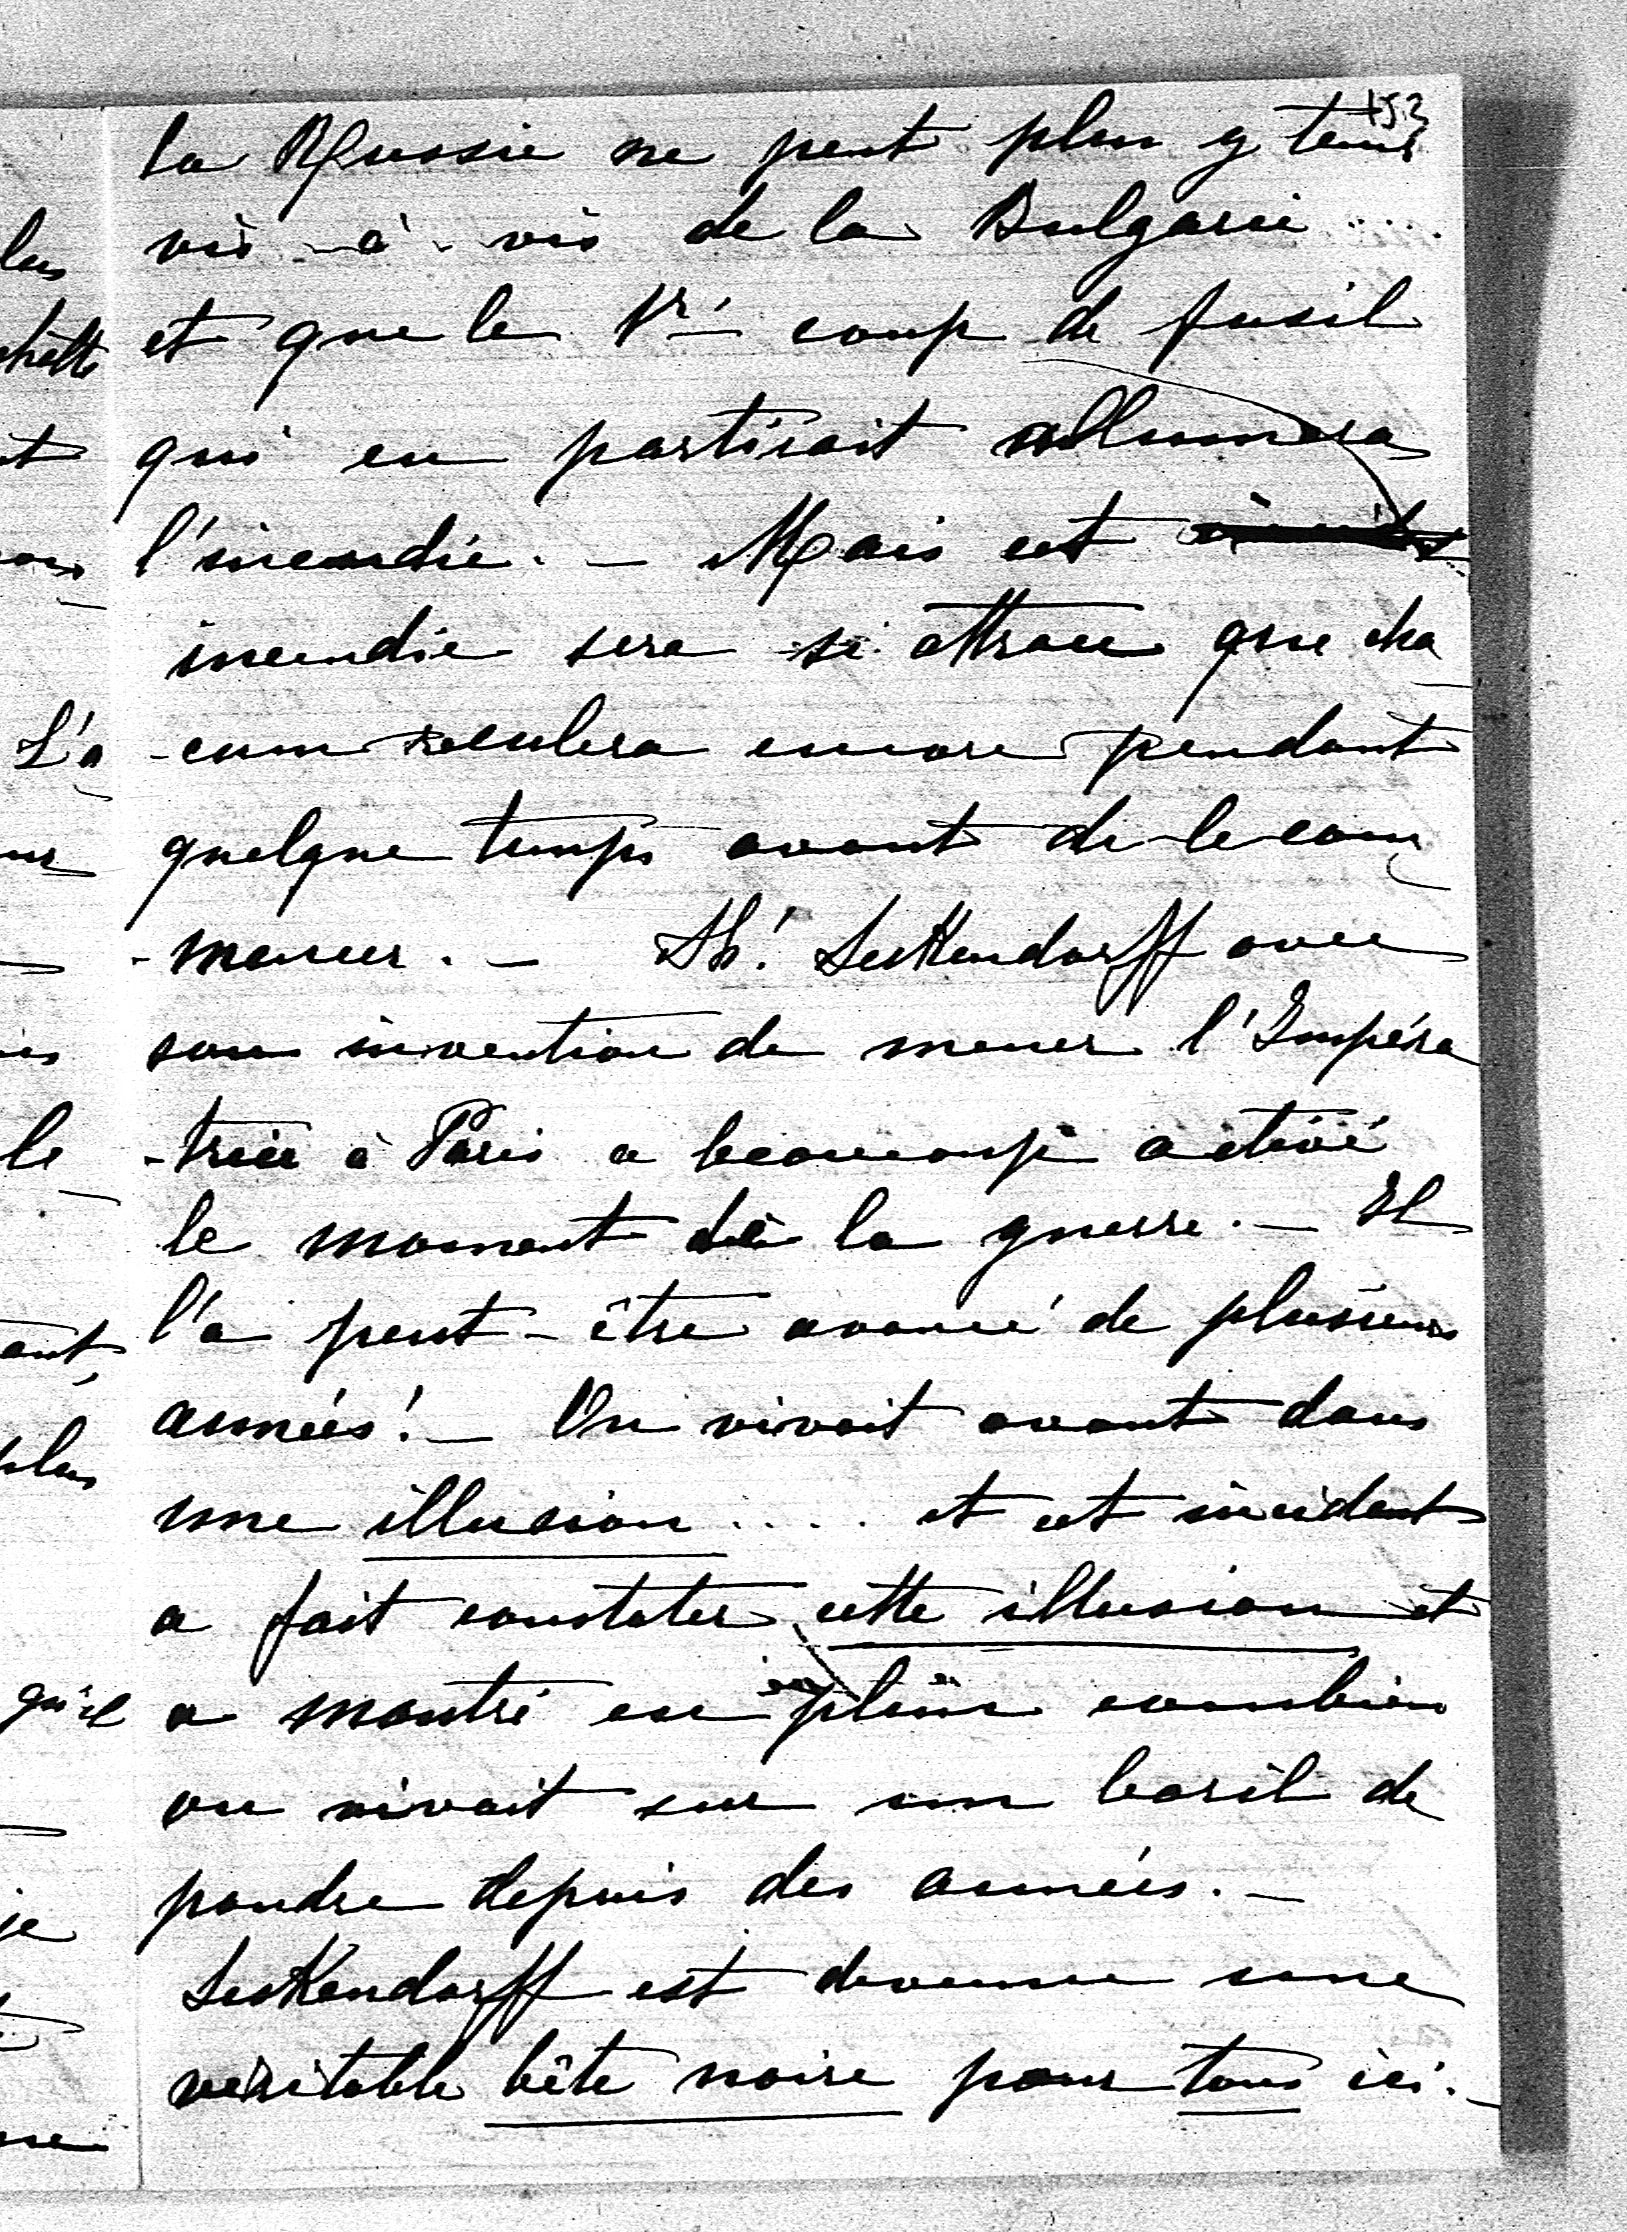 153
la Russie ne peut plus y tenir
vis-à-vis de la Bulgarie ....
et que le 1r coup de fusil
qui en partirait allumera
l'incendie. – Mais cet
incendie sera si atroce que cha
-cun reculera encore pendant
quelque temps avant de le com
-mencer. – Ah! Seckendorff avec
son invention de mener l'Impéra
-trice à Paris a beaucoup activé
le moment de la guerre. – Il
l'a peut-être avancé de plusieurs
années! – On vivait avant dans
une illusion .... et cet incident
a fait constater cette illusion et
a montré en plein combien
on vivait sur un baril de
poudre depuis des années. –
Seckendorff est devenu une
véritable bête noire pour tous ici. –